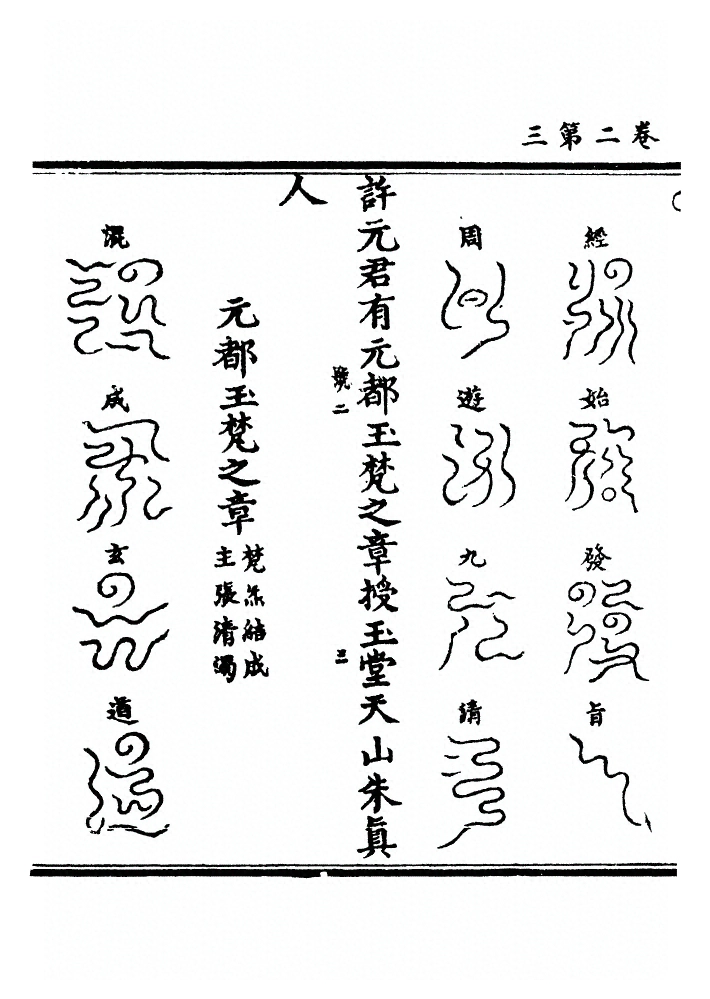 三第二卷
經始發旨
周遊九清
許元君有元都玉梵之章授玉堂天山朱眞
號二
三
人
元都玉梵之章
梵炁結成
主張清濁
混成玄道